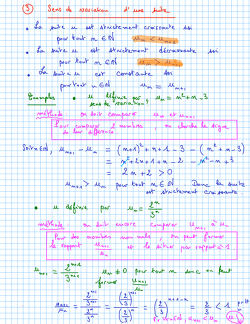 ③ Sens de variation d'une suite
• La suite u est strictement croissante ssi
pour tout n ∈ ℕ u_n < u_{n+1}
• La suite u est strictement décroissante ssi
pour tout n ∈ ℕ u_n > u_{n+1}
• La suite u est constante ssi
pour tout n ∈ ℕ u_n = u_{n+1}
Exemples • u définie par u_n = n² + n - 3
sens de variation ?
méthode on doit comparer u_n et u_{n+1}
Pour comparer 2 nombres, on cherche le signe
de leur différence
Soit n ∈ ℕ, u_{n+1} - u_n = (n+1)² + n+1 - 3 - (n² + n - 3)
= n² + 2n + 1 + n - 2 - n² - n + 3
= 2n + 2 > 0
u_{n+1} > u_n pour tout n ∈ ℕ Donc la suite
est strictement croissante
• u définie par u_n = 2^n / 3^n
méthode on doit encore comparer u_{n+1} à u_n
Pour des nombres non nuls on peut former
le rapport u_{n+1} / u_n et le situer par rapport à 1
u_{n+1} = 2^{n+1} / 3^{n+1} u_n ≠ 0 pour tout n donc on peut
former u_{n+1} / u_n
= 2/3 < 1